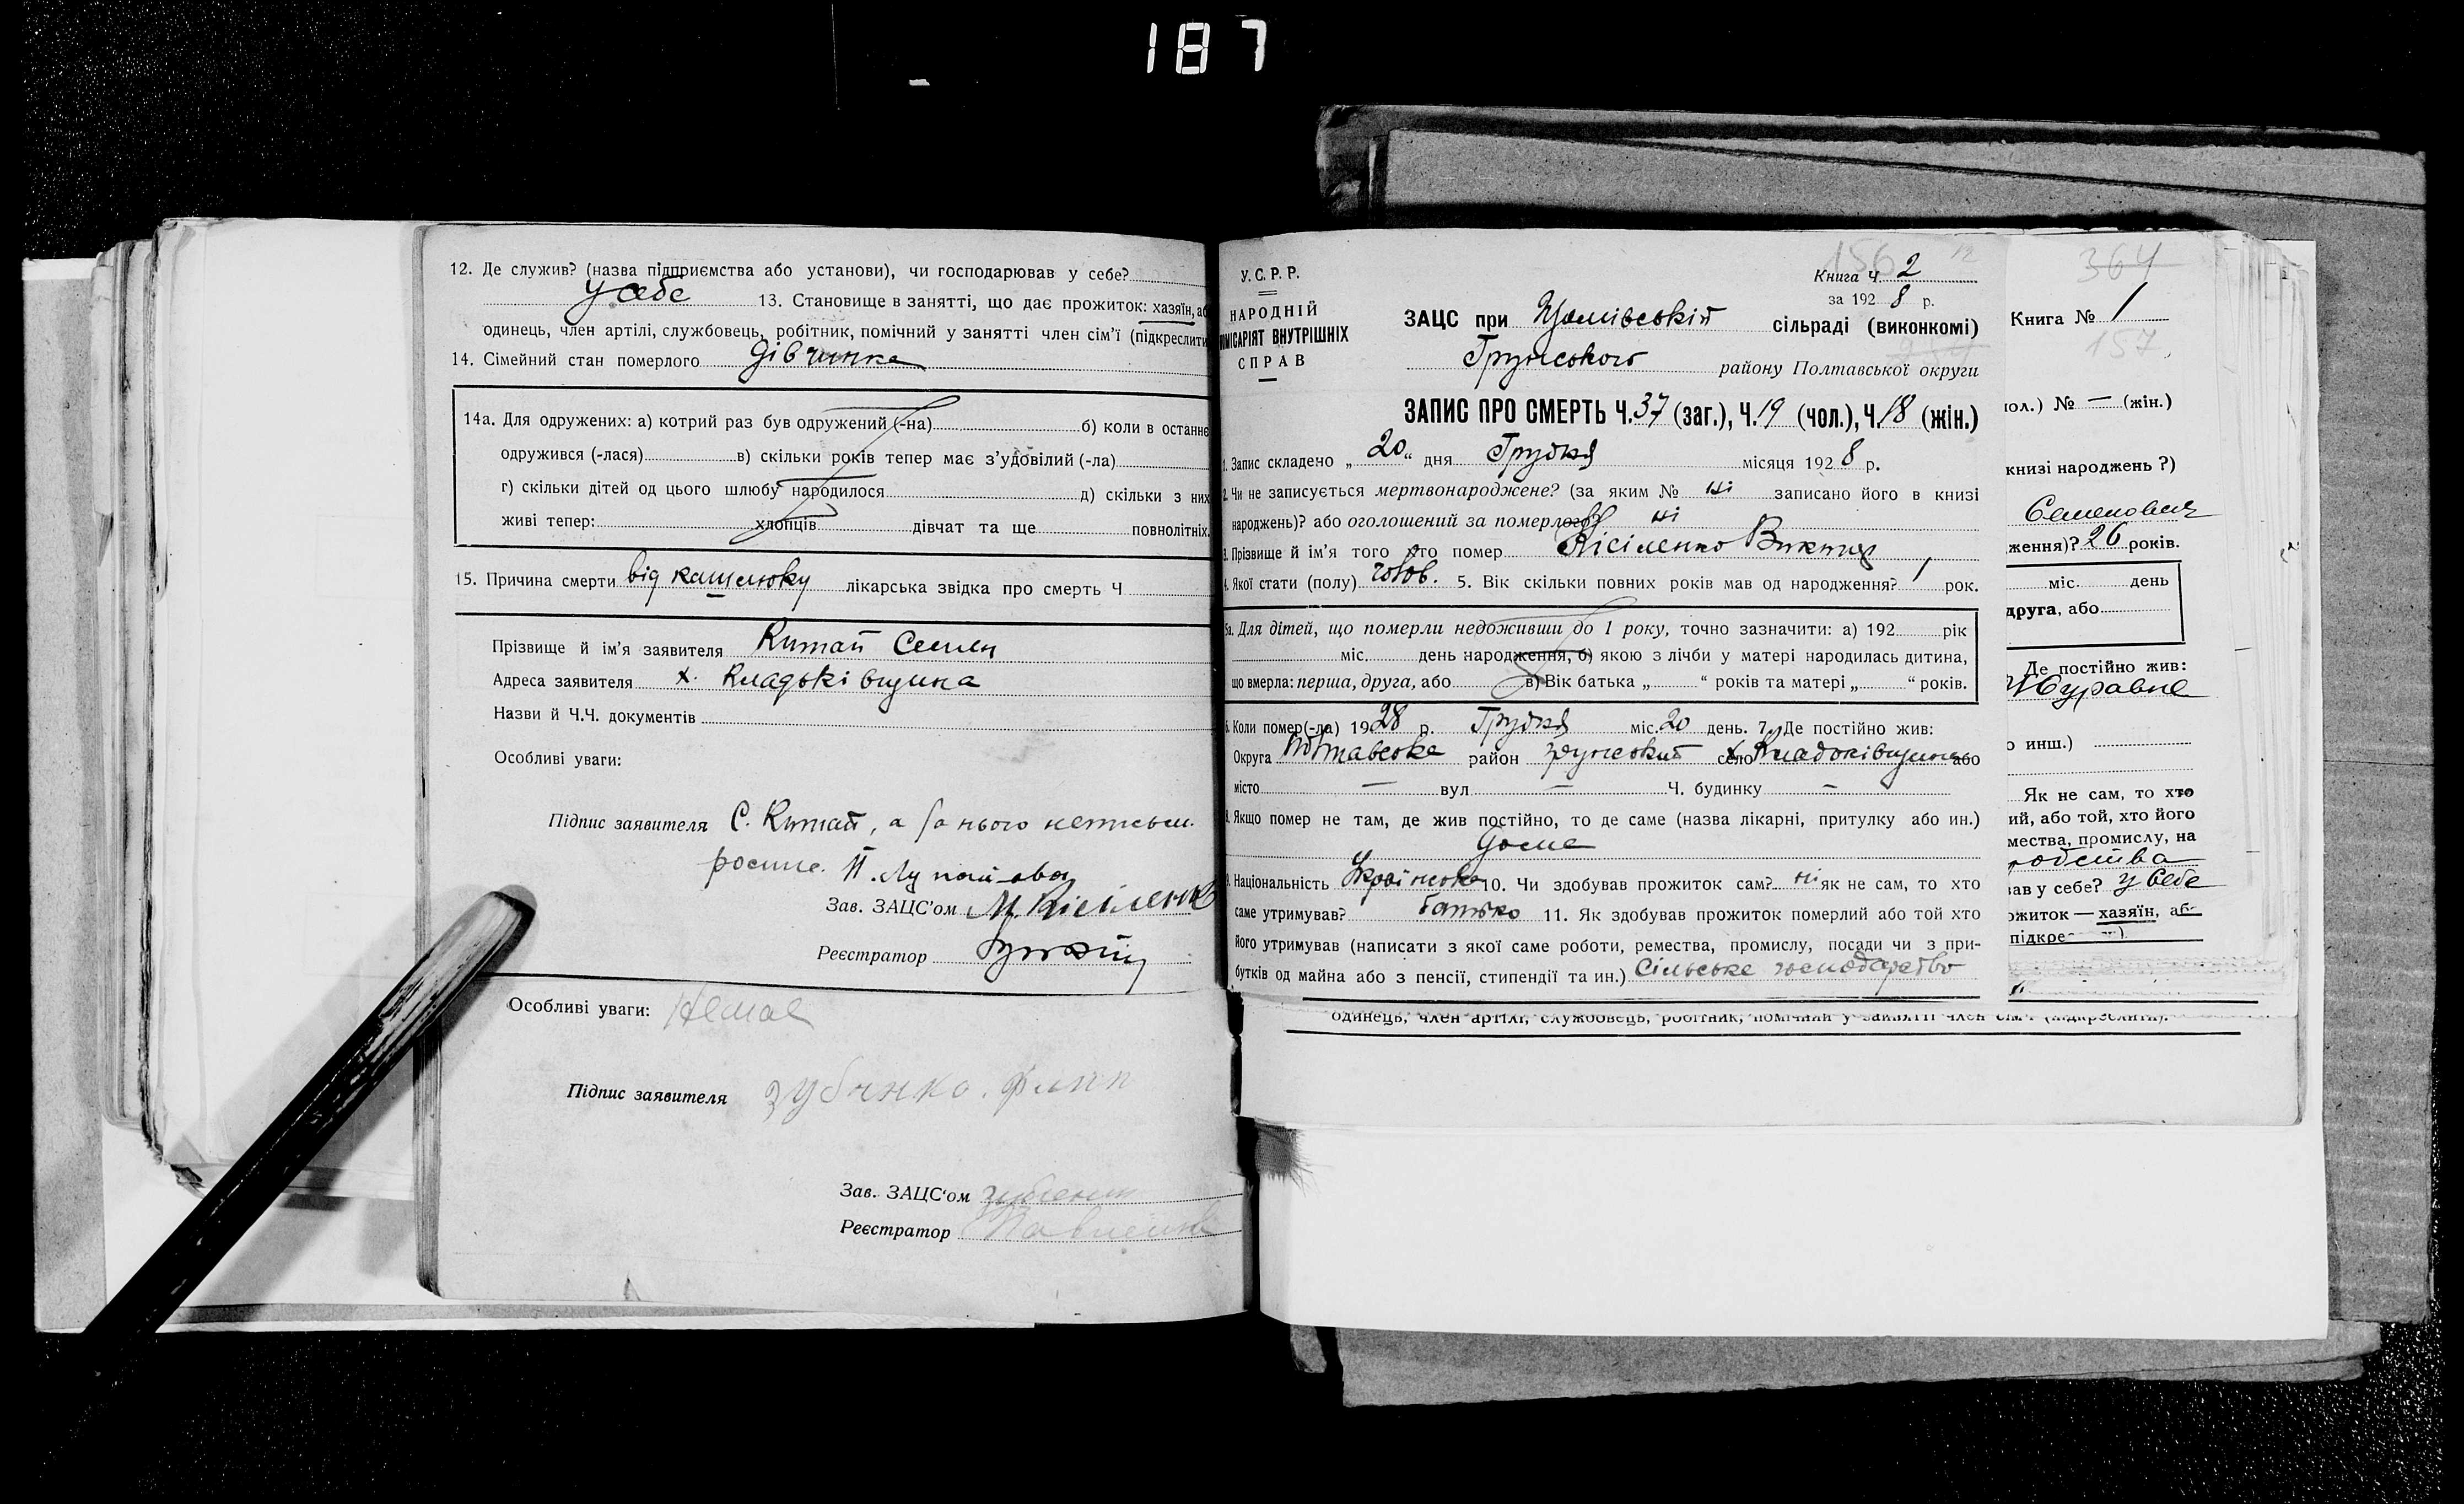 187
12. Де служив? (назва підприємства або установи), чи господарював у себе?
у себе 13. Становище в занятті, що дає прожиток: хазяїн, аб
одинець, член артілі, службовець, робітник, помічний у занятті член сім'ї (підкреслити
14. Сімейний стан померлого дівчинка
14а. Для одружених: а) котрий раз був одружений (-на) б) коли в останнє
одружився (-лася) в) скільки років тепер має з'удовілий (-ла)
г) скільки дітей од цього шлюбу народилося д) скільки з них
живі тепер: хлопців дівчат та ще повнолітніх.
15. Причина смерти від кашлюку лікарська звідка про смерть Ч
Прізвище й ім'я заявителя Китай Семен
Адреса заявителя х. Кладьківщина
Назви й Ч.Ч. документів
Особливі уваги:
Підпис заявителя С. Китай, а за нього неписьм.
росписа. П.
Зав. ЗАЦС'ом М. Кісіленко
Реєстратор
Особливі уваги: Немає
Підпис заявителя Зубенко. Филип
Зав. ЗАЦС'ом Зубенко
Реєстратор Павленко
У.С.Р.Р.
НАРОДНІЙ
ОМІСАРІЯТ ВНУТРІШНІХ
СПРАВ
156 12
Книга Ч. 2
за 1928 р.
ЗАЦС при сільраді (виконкомі)
Грунського району Полтавської округи
ЗАПИС ПРО СМЕРТЬ Ч. 37 (заг.), Ч. 19 (чол.), Ч. 18 (жін.)
1. Запис складено „20“ дня Грудня місяця 1928 р.
2. Чи не записується мертвонароджене? (за яким № ні записано його в книзі
народжень)? або оголошений за померлого? ні
3. Прізвище й ім'я того хто помер Кісіленко Виктор
4. Якої стати (полу) чолов. 5. Вік скільки повних років мав од народження? 1 рок.
5а. Для дітей, що померли недоживши до 1 року, точно зазначити: а) 192 рік
міс. день народження, б) якою з лічби у матері народилась дитина,
що вмерла: перша, друга, або в) Вік батька „ “ років та матері „ “ років.
6. Коли помер(-ла) 1928 р. Грудня міс. 20 день. 7. Де постійно жив:
Округа Полтавська район Грунський село х Кладьківщина або
місто — вул — Ч. будинку —
8. Якщо помер не там, де жив постійно, то де саме (назва лікарні, притулку або ин.)
дома
9. Національність Українська 10. Чи здобував прожиток сам? ні як не сам, то хто
саме утримував? батько 11. Як здобував прожиток померлий або той хто
його утримував (написати з якої саме роботи, ремества, промислу, посади чи з при-
бутків од майна або з пенсії, стипендії та ин.) Сільське господарство
одинець, член артілі, службовець, робітник, помічний у занятті член сім'ї (підкреслити).
364
Книга № 1
157
чол.) № — (жін.)
книзі народжень?)
Семенович
ження)? 26 років.
міс. день
друга, або
Де постійно жив:
Журавне
о инш.)
Як не сам, то хто
ий, або той, хто його
мества, промислу, на
ав у себе? у себе
ожиток — хазяїн, або
підкреслити).